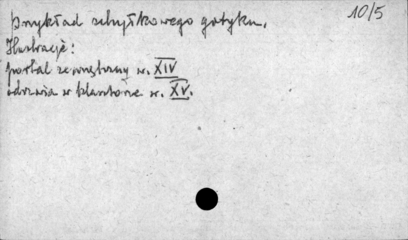 przykład schyłkowego gotyku.
10/5
Ilustracje:
portal zewnętrzny w. XIV
odrzwia w klasztorze w. XV.